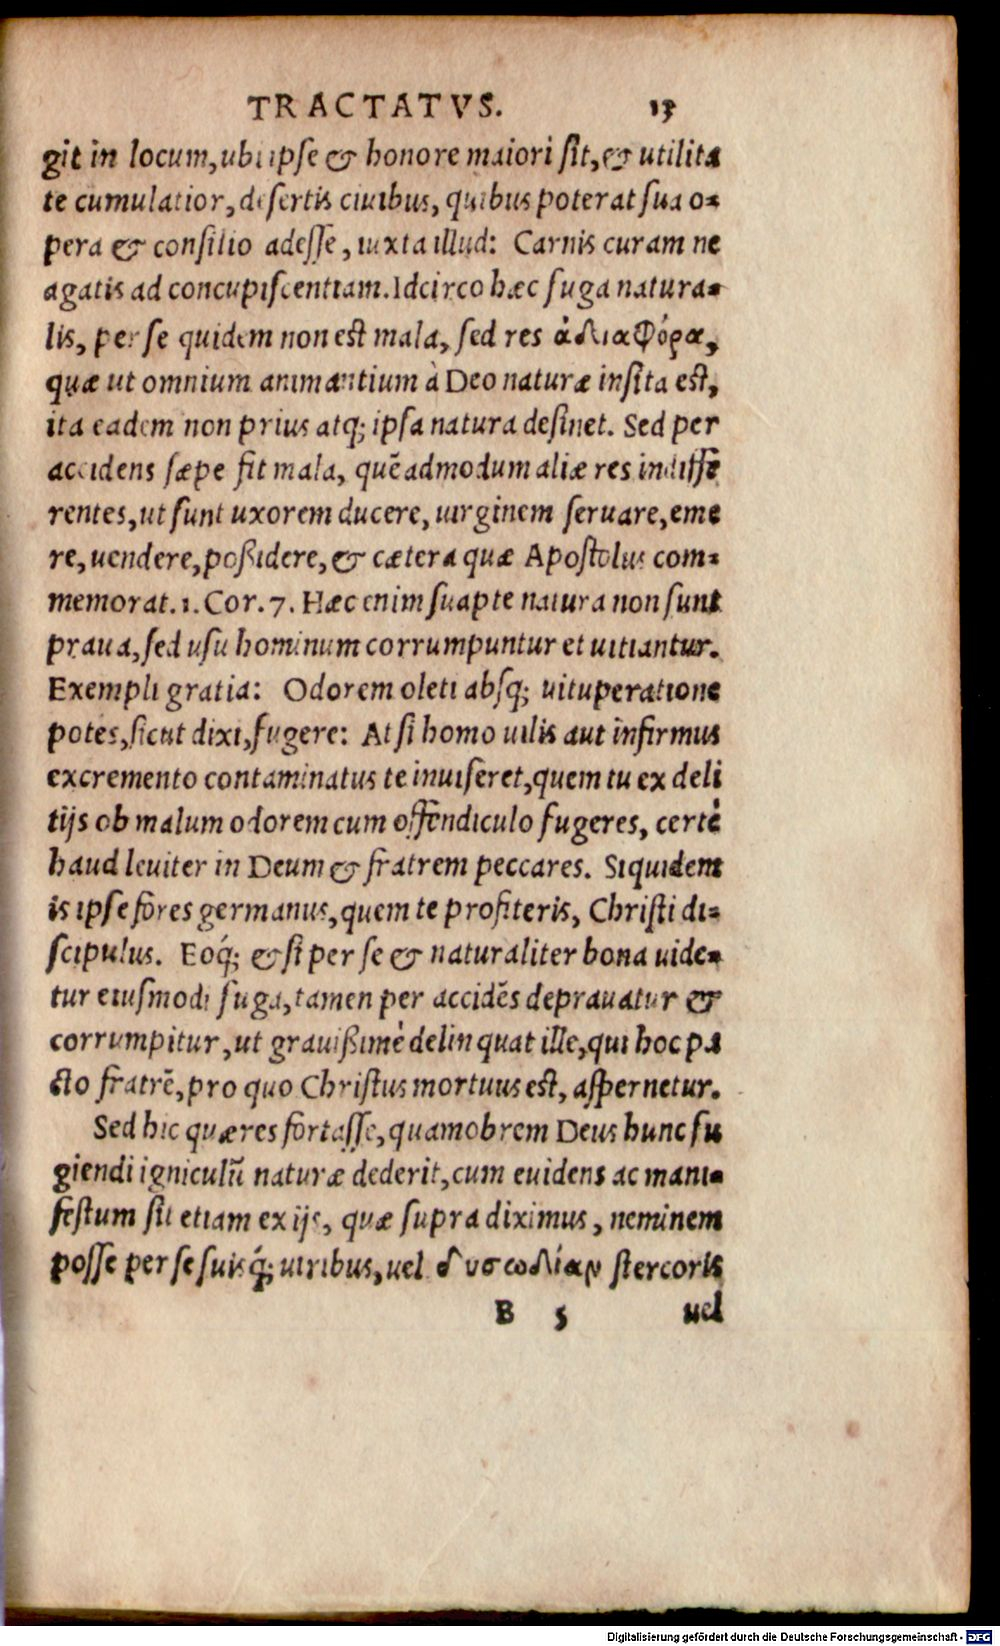 TRACTATVS. 13
git in locum, ubi ipse & honore maiori sit, & utilita
te cumulatior, desertis ciuibus, quibus poterat sua o-
pera & consilio adesse, iuxta illud: Carnis curam ne
agatis ad concupiscentiam. Idcirco hæc fuga natura-
lis, per se quidem non est mala, sed res ἀδιαφόρα,
quæ ut omnium animantium à Deo naturæ insita est,
ita eadem non prius atq; ipsa natura desinet. Sed per
accidens sæpe fit mala, quẽadmodum aliæ res indiffẽ
rentes, ut sunt uxorem ducere, uirginem seruare, eme
re, uendere, poßidere, & cætera quæ Apostolus com-
memorat. 1. Cor. 7. Hæc enim suapte natura non sunt
praua, sed usu hominum corrumpuntur et uitiantur.
Exempli gratia: Odorem oleti absq; uituperatione
potes, sicut dixi, fugere: At si homo uilis aut infirmus
excremento contaminatus te inuiseret, quem tu ex deli
tijs ob malum odorem cum offendiculo fugeres, certè
haud leuiter in Deum & fratrem peccares. Siquidem
is ipse fores germanus, quem te profiteris, Christi di-
scipulus. Eoq́; & si per se & naturaliter bona uide-
tur eiusmodi fuga, tamen per accidẽs deprauatur &
corrumpitur, ut grauißimè delinquat ille, qui hoc pa
cto fratrẽ, pro quo Christus mortuus est, aspernetur.
Sed hic quæres fortasse, quamobrem Deus hunc fu
giendi igniculũ naturæ dederit, cum euidens ac mani-
festum sit etiam ex ijs, quæ supra diximus, neminem
posse per se suisq́; uiribus, uel δυσωδίαν stercoris
B 5 uel
Digitalisierung gefördert durch die Deutsche Forschungsgemeinschaft - DFG